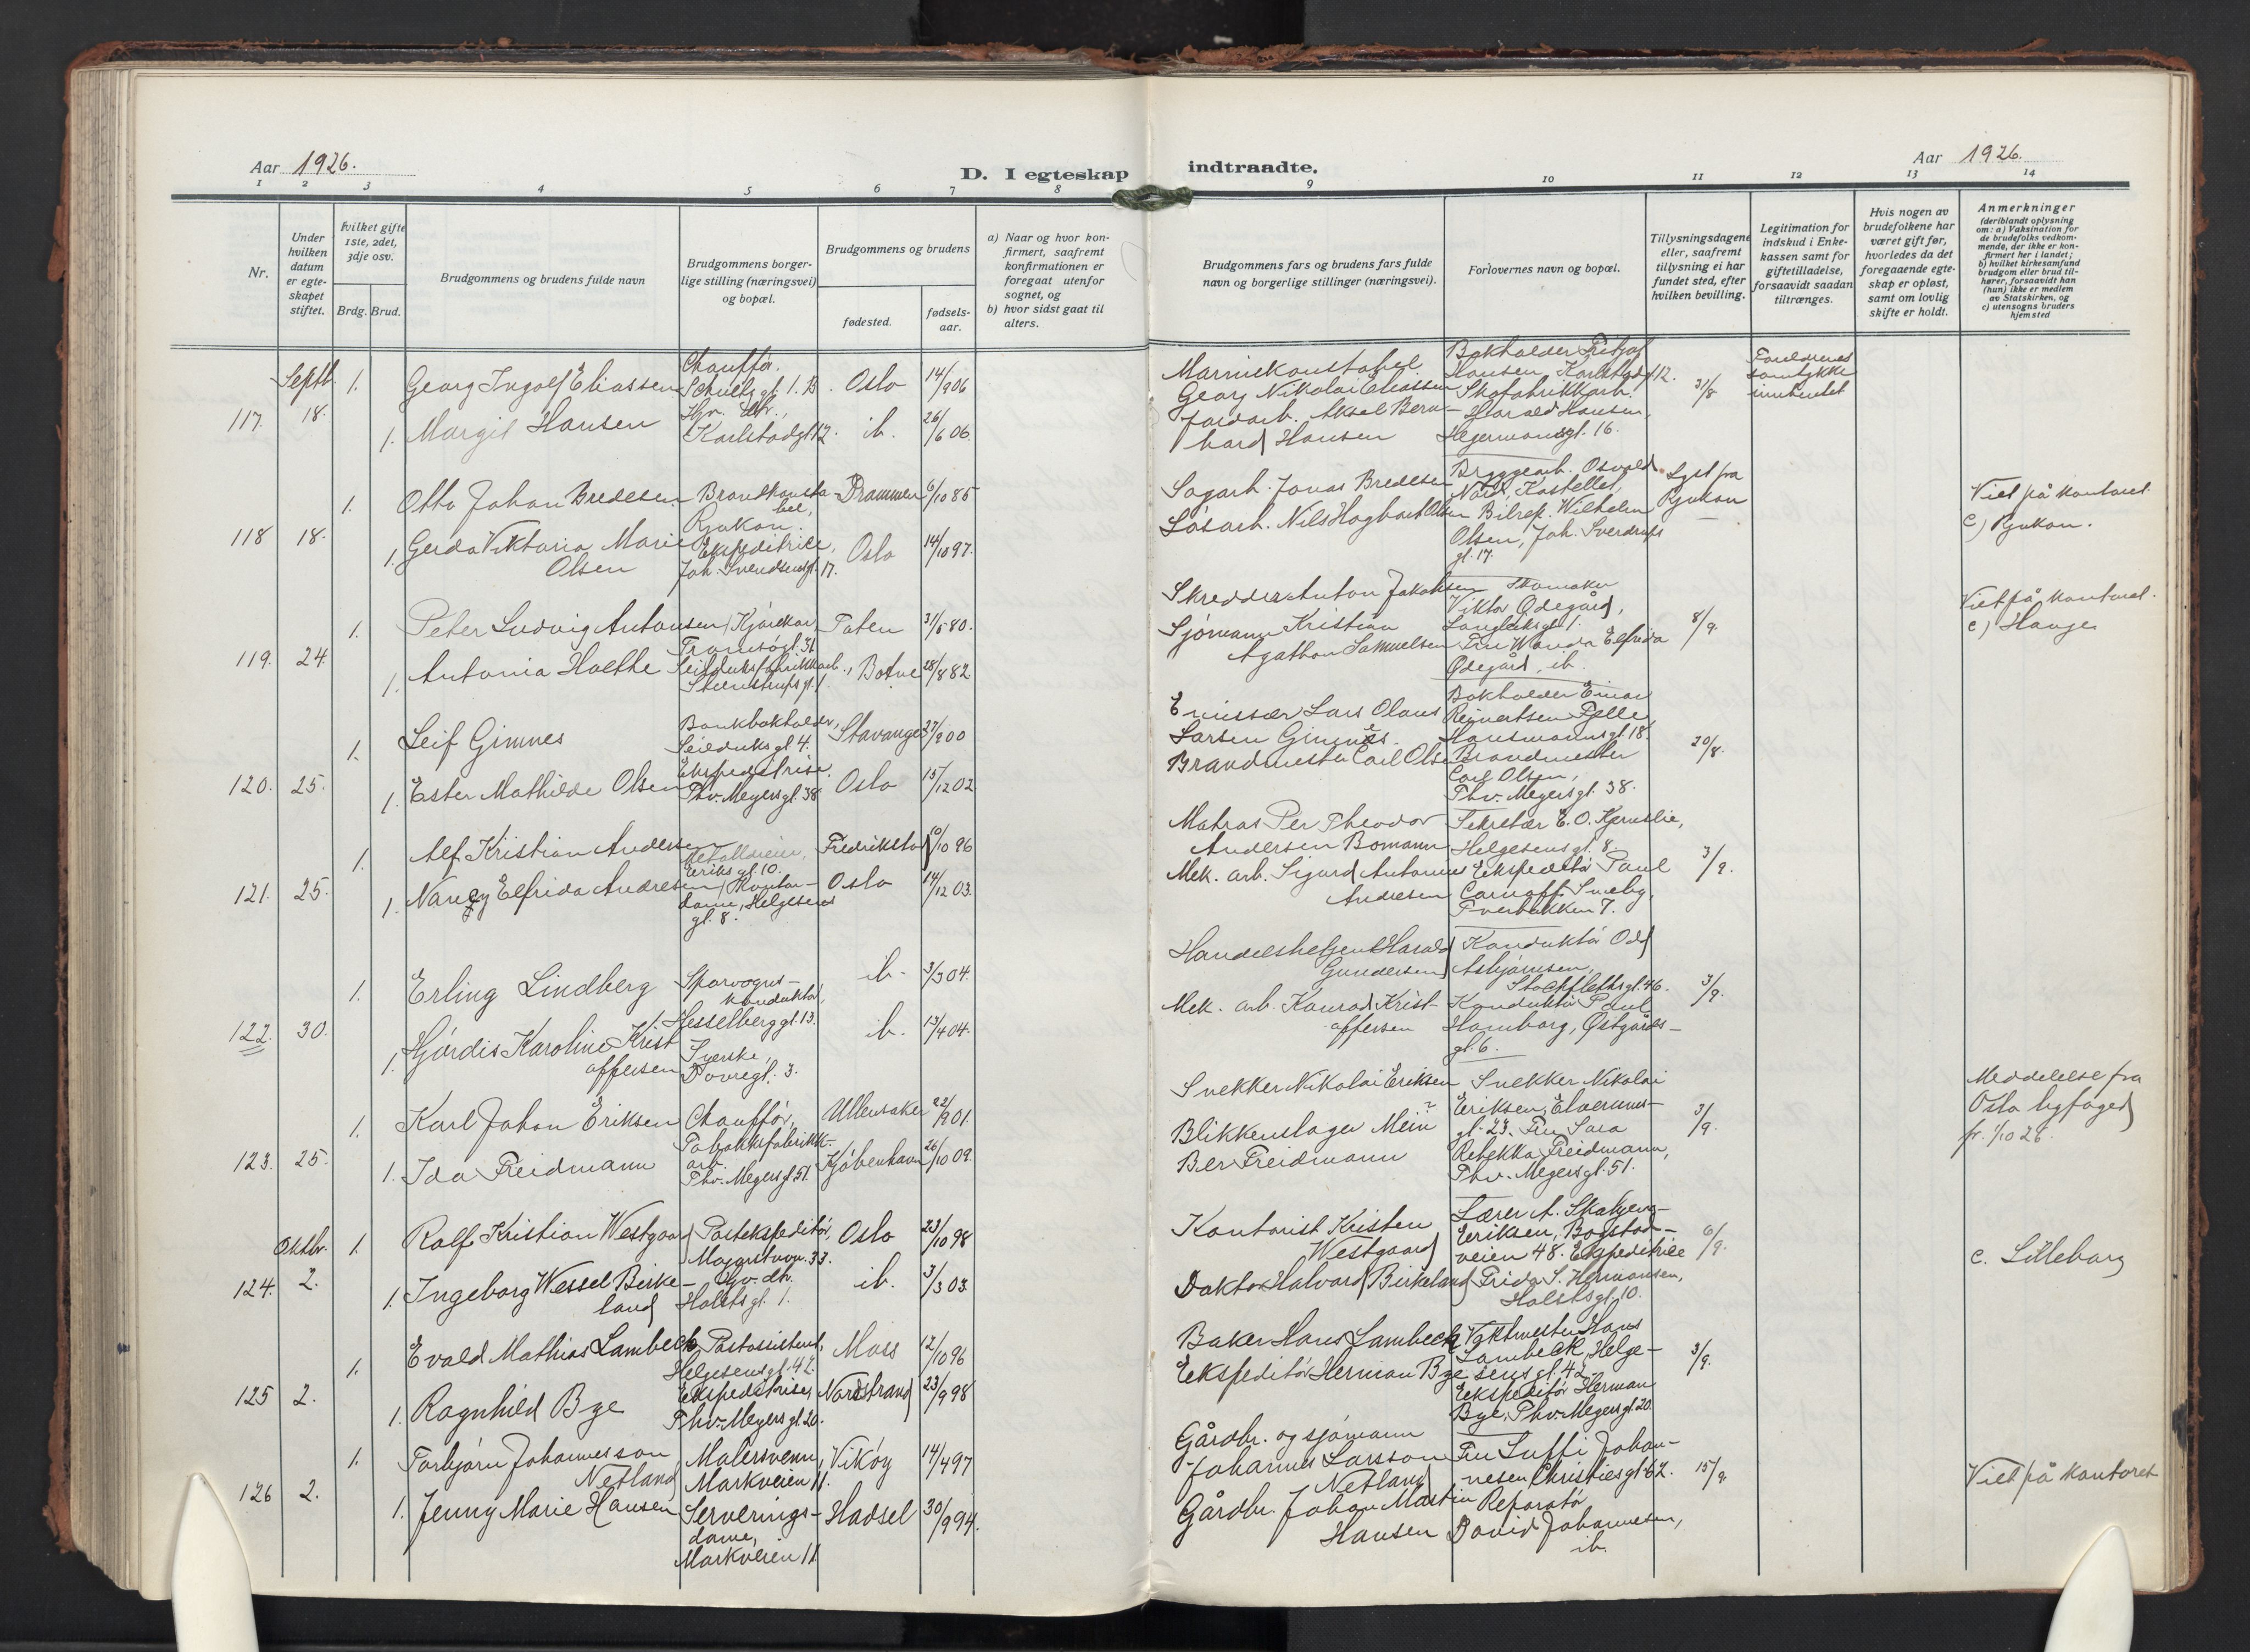 Aar 1926.
D. I egteskap
indtraadte.
Aar 1926.
1 2 3 4 5 6 7 8
9 10 11 12 13 14
Nr.
Under hvilken datum er egteskapet stiftet.
Hvilket gifte 1ste, 2det, 3dje osv.
Brdg. Brud.
Brudgommens og brudens fulde navn
Brudgommens borgerlige stilling (næringsvei) og bopæl.
Brudgommens og brudens
fødested.
fødselsaar.
a) Naar og hvor konfirmert, saafremt konfirmationen er foregaat utenfor sognet, og
b) hvor sidst gaat til alters.
Brudgommens fars og brudens fars fulde navn og borgerlige stillinger (næringsvei).
Forlovernes navn og bopæl.
Tillysningsdagene eller, saafremt tillysning ei har fundet sted, efter hvilken bevilling.
Legitimation for indskud i Enkekassen samt for giftetilladelse, forsaavidt saadan tiltrænges.
Hvis nogen av brudefolkene har været gift før, hvorledes da det foregaaende egteskap er opløst, samt om lovlig skifte er holdt.
Anmerkninger
(deriblandt oplysning om: a) Vaksination for de brudefolks vedkommende, der ikke er konfirmert her i landet; b) hvilket kirkesamfund brudgom eller brud tilhører, forsaavidt han (hun) ikke er medlem av Statskirken, og c) utensogns bruders hjemsted
117. Septb. 18.
1. Georg Ingolf Eliassen Chauffør. Schultz gt. 1. B. Oslo 14/9 06
1. Margit Hansen Hjv. dtr., Karlstadgt. 12. ib. 26/6 06.
Marinekonstabel Georg Nikolai Eliassen
Jordarb. Aksel Bernhard Hansen
Bokholder Fritjof Hansen, Karlstadgt. 12.
Skofabrikkarb. Harald Hansen, Hegermannsgt. 16.
31/8
Foreldrenes samtykke innhentet
118 18.
1. Otto Johan Bredesen Brandkonstabel, Rjukan. Drammen 6/10 85
1. Gerda Viktoria Marie Olsen Ekspeditrice, Joh. Svendsensgt. 17. Oslo 14/10 97.
Sagarb. Jonas Bredesen
Løsarb. Nils Hagbart Olsen
Bryggearb. Osvald Nord, Kastellet,
Bilrep. Wilhelm Olsen, Joh. Sverdrups gt. 17.
Lyst fra Rjukan
Viet på kontoret
c) Rjukan.
119. 24.
1. Peter Ludvig Antonsen Kjørekar, Tromsøgt. 31 Toten 31/5 80.
1. Antonia Holthe Seilduksfabrikkarb., Steenstrups gt. 1 Botne 28/8 82
Skredder Anton Jakobsen
Sjømann Kristian Agathon Samuelsen
Skomaker Viktor Ødegård,
Fru Wanda Elfrida Ødegård, ib.
8/9
Viet på kontoret.
c) Hauge
120. 25.
1. Leif Gimnes Bankbokholder, Seilduks gt. 4. Stavanger 27/8 00
1. Ester Mathilde Olsen Ekspeditrise. Thv. Meyers gt. 38 Oslo 15/12 02
Emissær Lars Olaus Larsen Gimnes.
Brandmester Carl Olsen
Bokholder Einar Reinertsen Fjelle Hausmannsgt. 18
Brandmester Carl Olsen, Thv. Meyers gt. 38.
20/8.
121. 25.
1. Alf Kristian Andersen Metalldreier, Eiriks gt. 10. Fredrikstad 10/10 96
1. Nancy Elfrida Andresen Kontordame, Helgesens gt. 8. Oslo 14/12 03.
Matros Per Theodor Andersen Bomann
Mek. arb. Sigurd Antonius Andresen
Sekretær E. O. Kjernlie, Helgesens gt. 8.
Ekspeditør Paul Smeby, Tverbakken 7.
3/9.
122. 30.
1. Erling Lindberg Sporvognskonduktør, Hesselberg gt. 13. ib. 3/3 04.
1. Hjørdis Karoline Kristoffersen Syerske, Dovregt. 3. ib. 13/4 04.
Handelsbetjent Harald Gundersen
Mek. arb. Konrad Kristoffersen
Konduktør Odd Asbjørnsen, Stockfleths gt. 46.
Konduktør Paul Hamborg, Østgårdsgt. 6.
3/9.
123. 25.
1. Karl Johan Eriksen Chauffør, Ullensaker 22/9 01.
1. Ida Freidmann Tobakksfabrikkarb. Thv. Meyers gt. 51. Kjøbenhavn 26/10 09.
Snekker Nikolai Eriksen
Blikkenslager Mein Ber Freidmann
Snekker Nikolai Eriksen, Elverumsgt. 23. Fru Sara Rebekka Freidmann, Thv. Meyers gt. 51.
3/9.
Meddelelse fra Oslo byfoged fr. 1/10 26.
124. Oktbr. 2.
1. Rolf Kristian Westgaard Postekspeditør, 33. Oslo 23/10 98
1. Ingeborg Wessel Birkeland Hjv. dtr. Holsts gt. 1. ib. 3/3 03.
Kontorist Kristen Westgaard
Doktor Halvard Birkeland
Lærer A. Eriksen, Bogstadveien 48. Ekspeditrice Frida S. Hermansen, Holsts gt. 10.
6/9.
c. Lilleborg
125 2.
1. Evald Mathias Lambech Postassistent, Helgesens gt. 42. Moss 12/10 96
1. Ragnhild Bye Ekspeditrise, Thv. Meyers gt. 20. Nordstrand 23/9 98
Baker Hans Lambech
Ekspeditør Herman Bye
Vaktmester Hans Lambeck, Helgesens gt. 42
Ekspeditør Herman Bye, Thv. Meyers gt. 20.
3/9.
126 2.
1. Torbjørn Johannesson Netland Malersvenn, Markveien 11. Vikøy 14/4 97
1. Jenny Marie Hansen Serveringsdame, Markveien 11 Hadsel 30/9 94.
Gårdbr. og sjømann Johannes Larsson Netland
Gårdbr. Johan Martin Hansen
Fru Luffi Johannesen Christies gt. 62.
Reparatør David Johannesen, ib.
15/9
Viet på kontoret